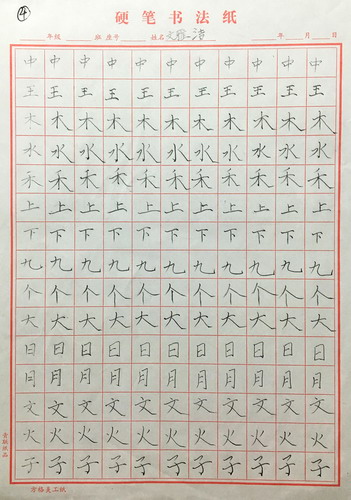 ④
硬笔书法纸
年级 班 座号 姓名 文雅洁 年 月 日
中 中 中 中 中 中 中 中 中 中 中
王 王 王 王 王 王 王 王 王 王 王
木 木 木 木 木 木 木 木 木 木 木
水 水 水 水 水 水 水 水 水 水 水
禾 禾 禾 禾 禾 禾 禾 禾 禾 禾 禾
上 上 上 上 上 上 上 上 上 上 上
下 下 下 下 下 下 下 下 下 下 下
九 九 九 九 九 九 九 九 九 九 九
个 个 个 个 个 个 个 个 个 个 个
大 大 大 大 大 大 大 大 大 大 大
日 日 日 日 日 日 日 日 日 日 日
月 月 月 月 月 月 月 月 月 月 月
文 文 文 文 文 文 文 文 文 文 文
火 火 火 火 火 火 火 火 火 火 火
子 子 子 子 子 子 子 子 子 子 子
方格美工纸